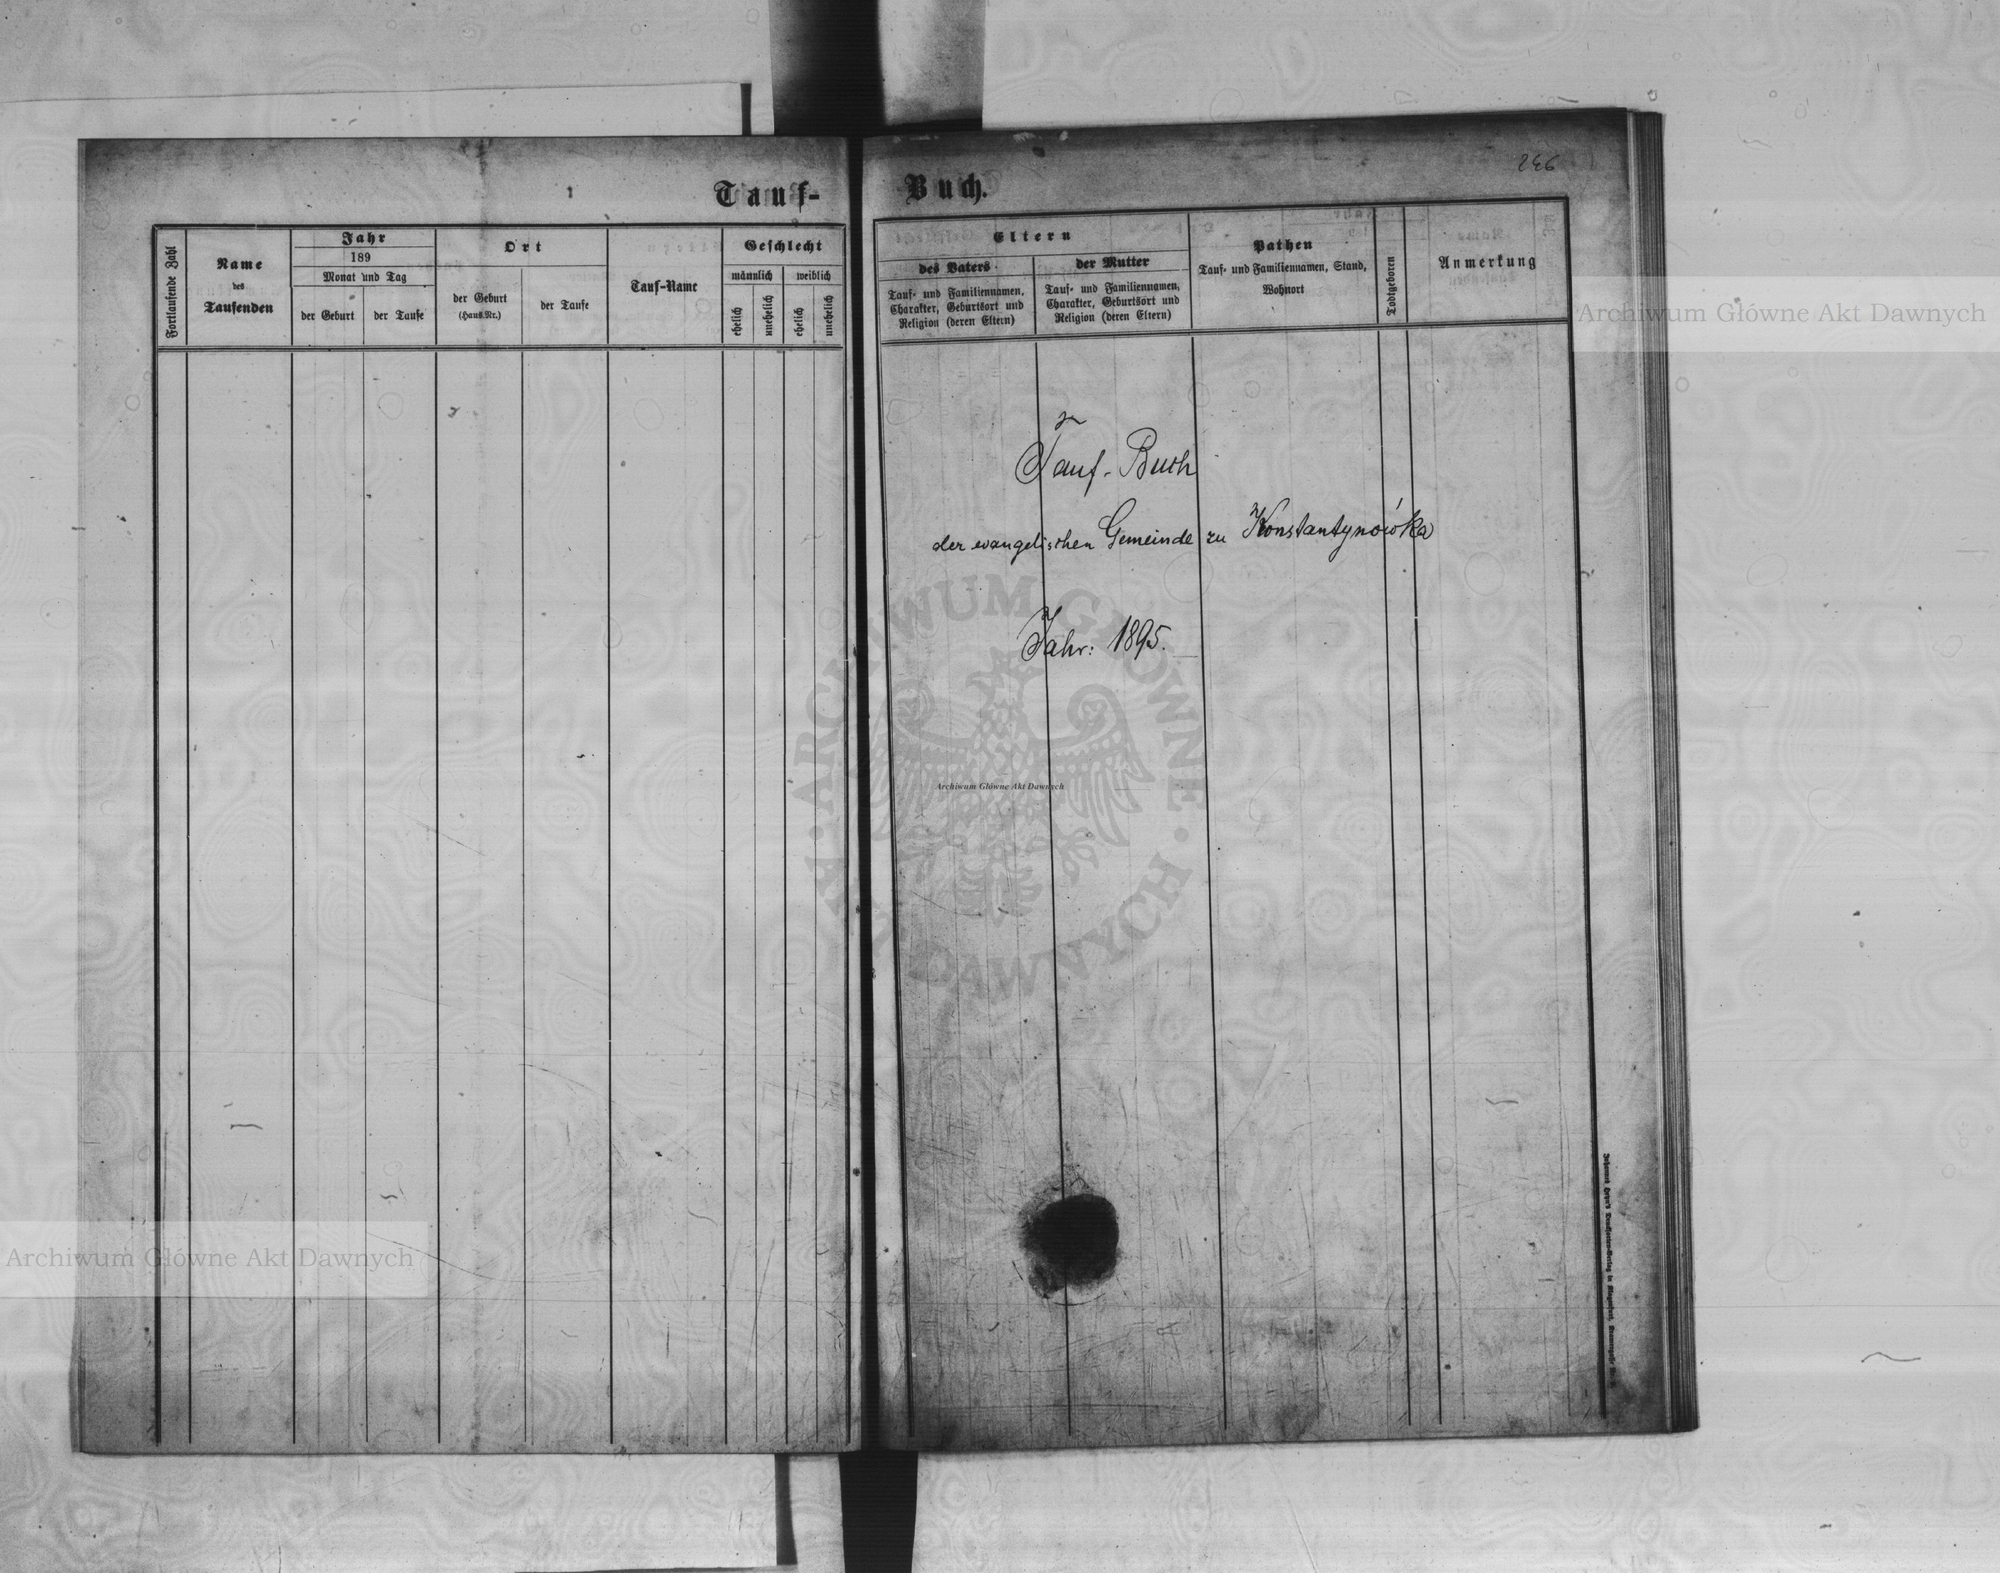 Tauf-
Fortlaufende Zahl
Name
des
Taufenden
Jahr
189
Monat und Tag
der Geburt
der Taufe
Ort
der Geburt
(Haus-Nr.)
der Taufe
Tauf-Name
Geschlecht
männlich
weiblich
ehelich
unehelich
ehelich
unehelich
Buch.
Eltern
des Vaters
Tauf- und Familiennamen,
Charakter, Geburtsort und
Religion (deren Eltern)
der Mutter
Tauf- und Familiennamen,
Charakter, Geburtsort und
Religion (deren Eltern)
Pathen
Tauf- und Familiennamen, Stand,
Wohnort
Todtgeboren
Anmerkung
Tauf-Buch
der evangelischen Gemeinde zu Konstantynówka
Jahr: 1895.
ARCHIWUM GŁÓWNE AKT DAWNYCH
Archiwum Główne Akt Dawnych
Archiwum Główne Akt Dawnych
Archiwum Główne Akt Dawnych